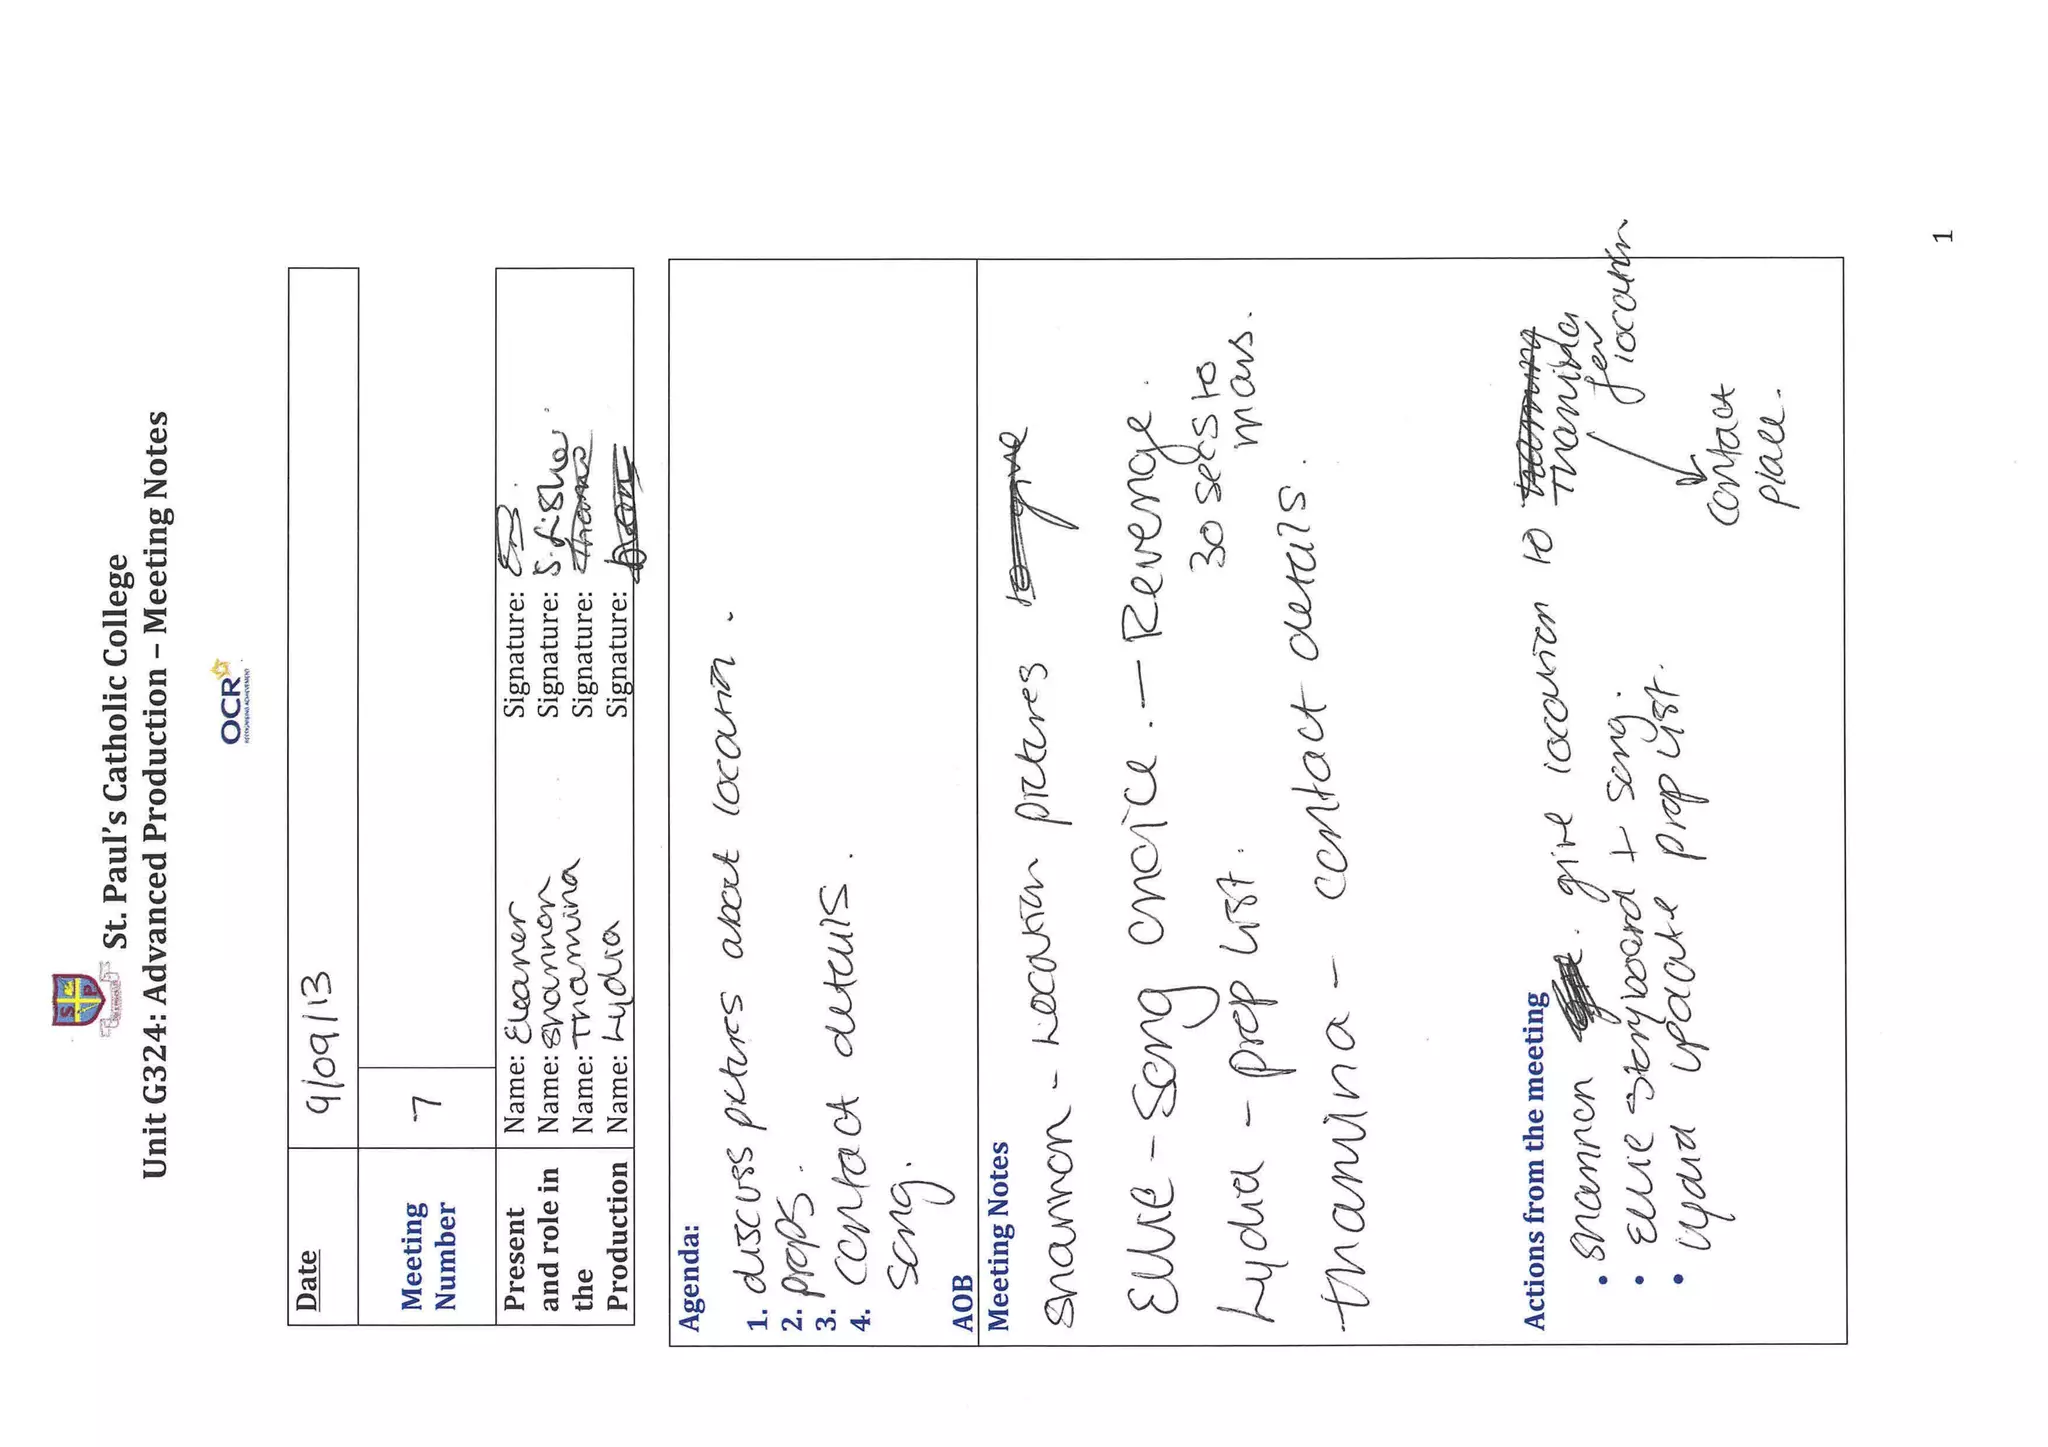 St. Paul's Catholic College
Unit G324: Advanced Production – Meeting Notes
OCR
RECOGNISING ACHIEVEMENT
Date 9/09/13
Meeting Number 7
Present and role in the Production
Name: Eleanor Signature: EB
Name: Shannon Signature: S. Fisher
Name: Thamina Signature:
Name: Lydia Signature:
Agenda:
1. discuss pictures about location.
2. props.
3. contact details.
4. song.
AOB
Meeting Notes
Shannon - Location pictures
Ellie - Song choice. - Revenge.
30 secs to
mars.
Lydia - prop list.
thamina - contact details.
Actions from the meeting
• Shannon give location to Thamina
for location
contact
place.
• Ellie storyboard + song.
• Lydia update prop list.
1